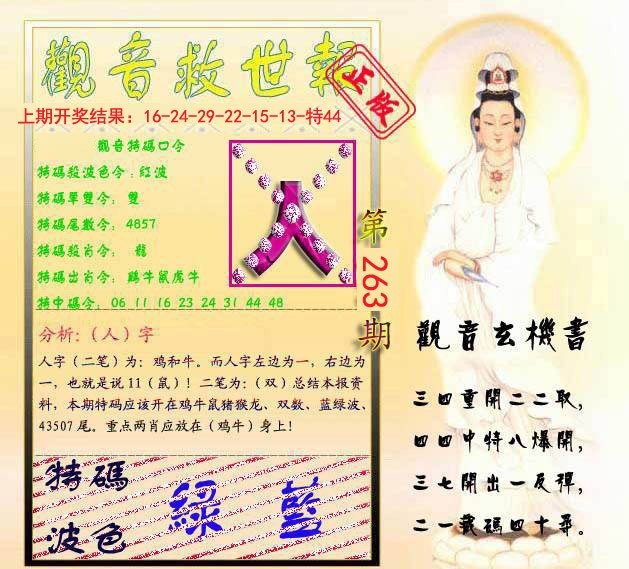 觀音救世報
正版
上期开奖结果：16-24-29-22-15-13-特44
觀音特碼口令
特碼殺波色令：紅波
特碼單雙令： 雙
特碼尾數令： 4857
特碼殺肖令： 龍
特碼出肖令： 鷄牛鼠虎牛
特中碼令： 06 11 16 23 24 31 44 48
人
第263期
分析：（人）字
人字（二笔）为：鸡和牛。而人字左边为一，右边为
一，也就是说11（鼠）！二笔为：（双）总结本报资
料，本期特码应该开在鸡牛鼠猪猴龙、双数、蓝绿波、
43507尾。重点两肖应放在（鸡牛）身上！
特碼
波色
綠 藍
觀音玄機書
三四重開二二取，
四四中特八爆開，
三七開出一反彈，
二一載碼四十尋。